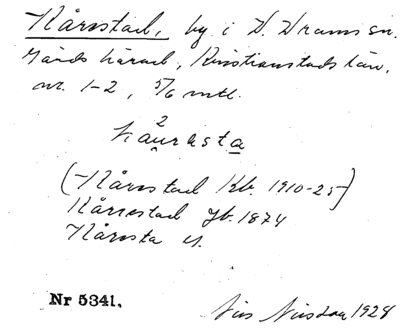 Kårestad, by i V. Vram sn.
Gärds härad, Kristianstads län,
nr. 1-2, 5/6 mtl.
2
kåurasta
(Kårestad Kb. 1910-25)
Kårrestad Jb. 1874
Kåresta
Nr 5341.
1928